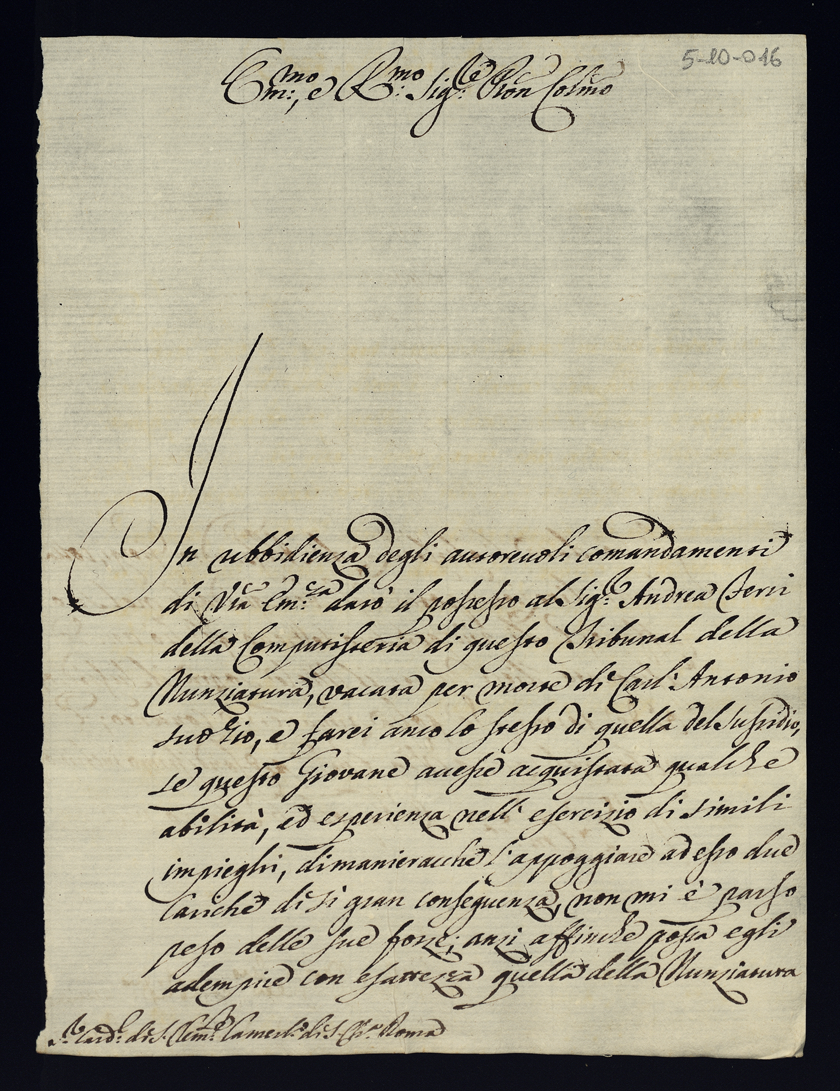 5-10-016
Em:mo, e R:mo Sig:re Pron Colmo
In ubbidienza degli autorevoli comandamenti
di Vra Em:za darò il possesso al Sig:r Andrea Terri
della Computisteria di questo Tribunal della
Nunziatura, vacata per morte di Carl' Antonio
suo Zio, e farei anco lo stesso di quella del Sussidio,
se questo Giovane avesse acquistata qualche
abilità, ed esperienza nell' esercizio di simili
impieghi, dimanieracchè l'appoggiare ad esso due
cariche di sì gran conseguenza, non mi è parso
peso delle sue forze; anzi affinche possa egli
adempire con esattezza quella della Nunziatura
S:r Card:l di S. Clem:te Camerl:o di S. Ch:a Roma